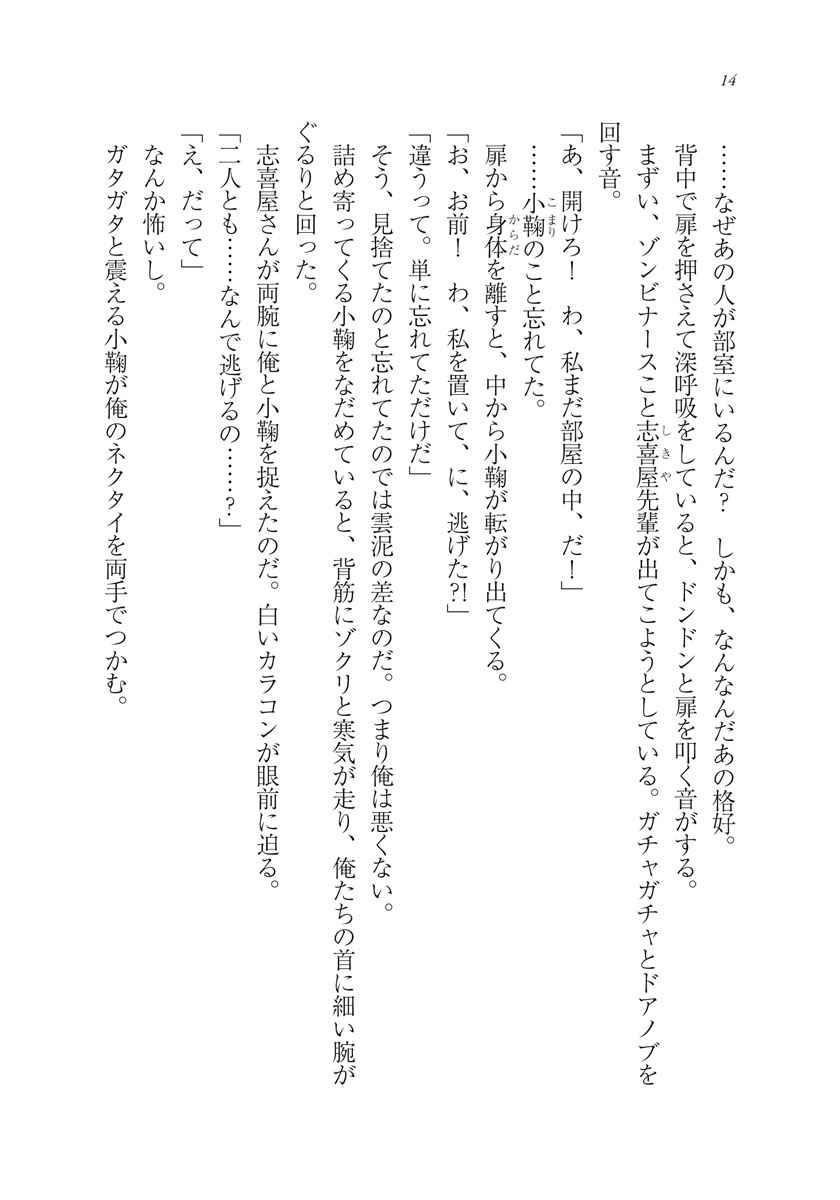 14
……なぜあの人が部室にいるんだ？　しかも、なんなんだあの格好。
背中で扉を押さえて深呼吸をしていると、ドンドンと扉を叩く音がする。
まずい、ゾンビナースこと志喜屋先輩が出てこようとしている。ガチャガチャとドアノブを
しきや
回す音。
「あ、開けろ！　わ、私まだ部屋の中、だ！」
……小鞠のこと忘れてた。
こまり
扉から身体を離すと、中から小鞠が転がり出てくる。
からだ
「お、お前！　わ、私を置いて、に、逃げた?!」
「違うって。単に忘れてただけだ」
そう、見捨てたのと忘れてたのでは雲泥の差なのだ。つまり俺は悪くない。
詰め寄ってくる小鞠をなだめていると、背筋にゾクリと寒気が走り、俺たちの首に細い腕が
ぐるりと回った。
志喜屋さんが両腕に俺と小鞠を捉えたのだ。白いカラコンが眼前に迫る。
「二人とも……なんで逃げるの……？」
「え、だって」
なんか怖いし。
ガタガタと震える小鞠が俺のネクタイを両手でつかむ。